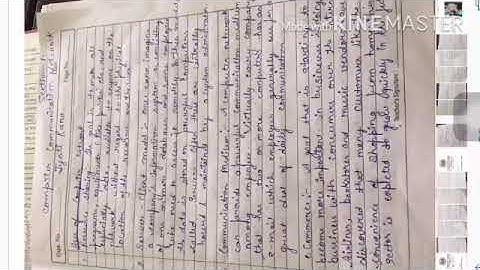 Made With
KINEMASTER
Expt. No.
Page No.
Computer Communication Network
Section
Jyoti Rana
Uses of Computer Network
Resource sharing: the goal is to make all
programs, equipment
available to anyone on the
network without regard to the physical
location of the resource and the user.
Server Client model: one can imagine
a company's information system as consisting
of one or more databases and some employees
who need to access it remotely. In this model
the data is stored on powerful computers
called Servers. often these are centrally
housed & maintained by a system administrator
Communication Medium: A computer network
can provide a powerful communication medium
among employees. Virtually every company
that has two or more computers has
e-mail which employees generally use for a
great deal of daily communication.
eCommerce: A goal that is starting to
become more important in businesses is doing
business with consumers over the
Airlines, bookstores and music vendors have
discovered that many customers like the
convenience of shopping from home. This
sector is expected to grow quickly in the
Teacher's Signature